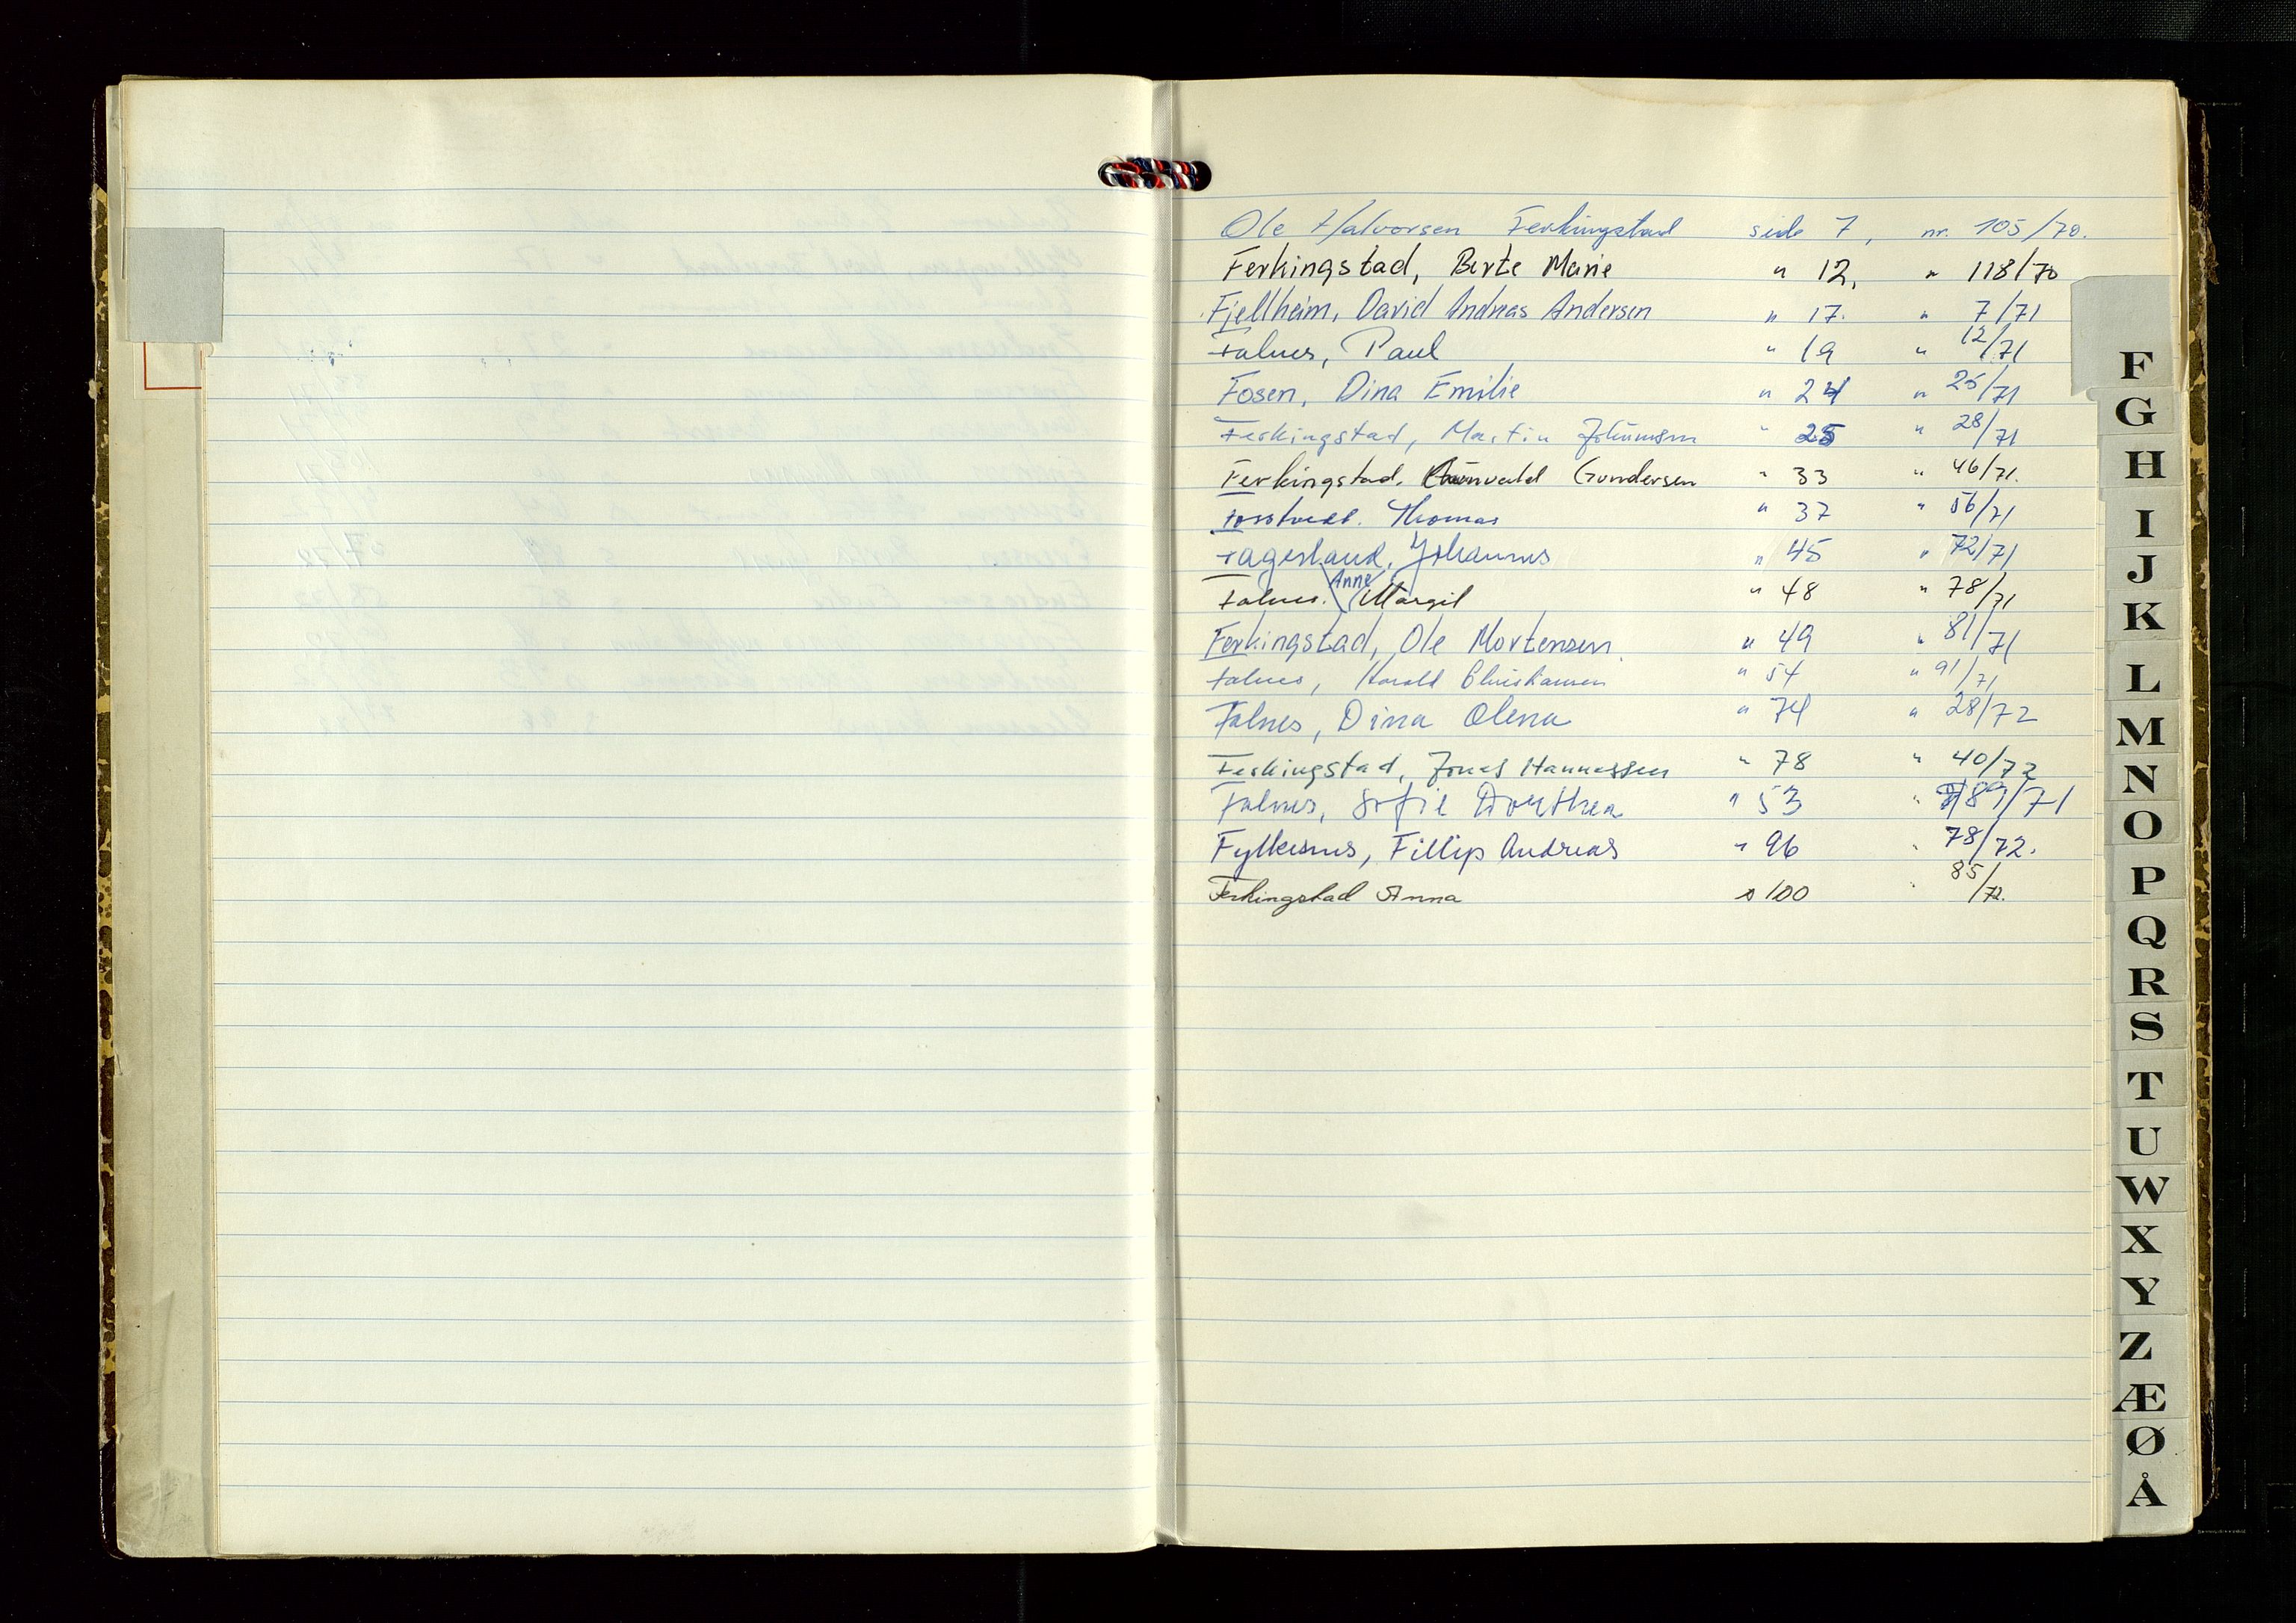 Ole Halvorsen Ferkingstad side 7, nr. 105/70.
Ferkingstad, Berte Marie " 12, " 118/70
Fjellheim, David Andreas Andersen " 17. " 7/71
Falnes, Paul " 19 " 12/71
Fosen, Dina Emilie " 24 " 25/71
Ferkingstad, Martin Johannesen " 25 " 28/71
Ferkingstad, Gundersen " 33 " 46/71.
Thomas " 37 " 56/71
Fagerland, Johannes " 45 " 72/71
Falnes. Anne Margit " 48 " 78/71
Ferkingstad, Ole Mortensen. " 49 " 81/71
Falnes, Harald Christiansen " 54 " 91/71
Falnes, Dina Olena " 74 " 28/72
Ferkingstad, Jonas Hannassen " 78 " 40/72
Falnes, Sofie Dorthea " 53 " 89/71
Fylkesnes, Fillip Andreas " 96 " 78/72.
Ferkingstad Anna " 100 " 85/72.
F
G
H
I
J
K
L
M
N
O
P
Q
R
S
T
U
W
X
Y
Z
Æ
Ø
Å